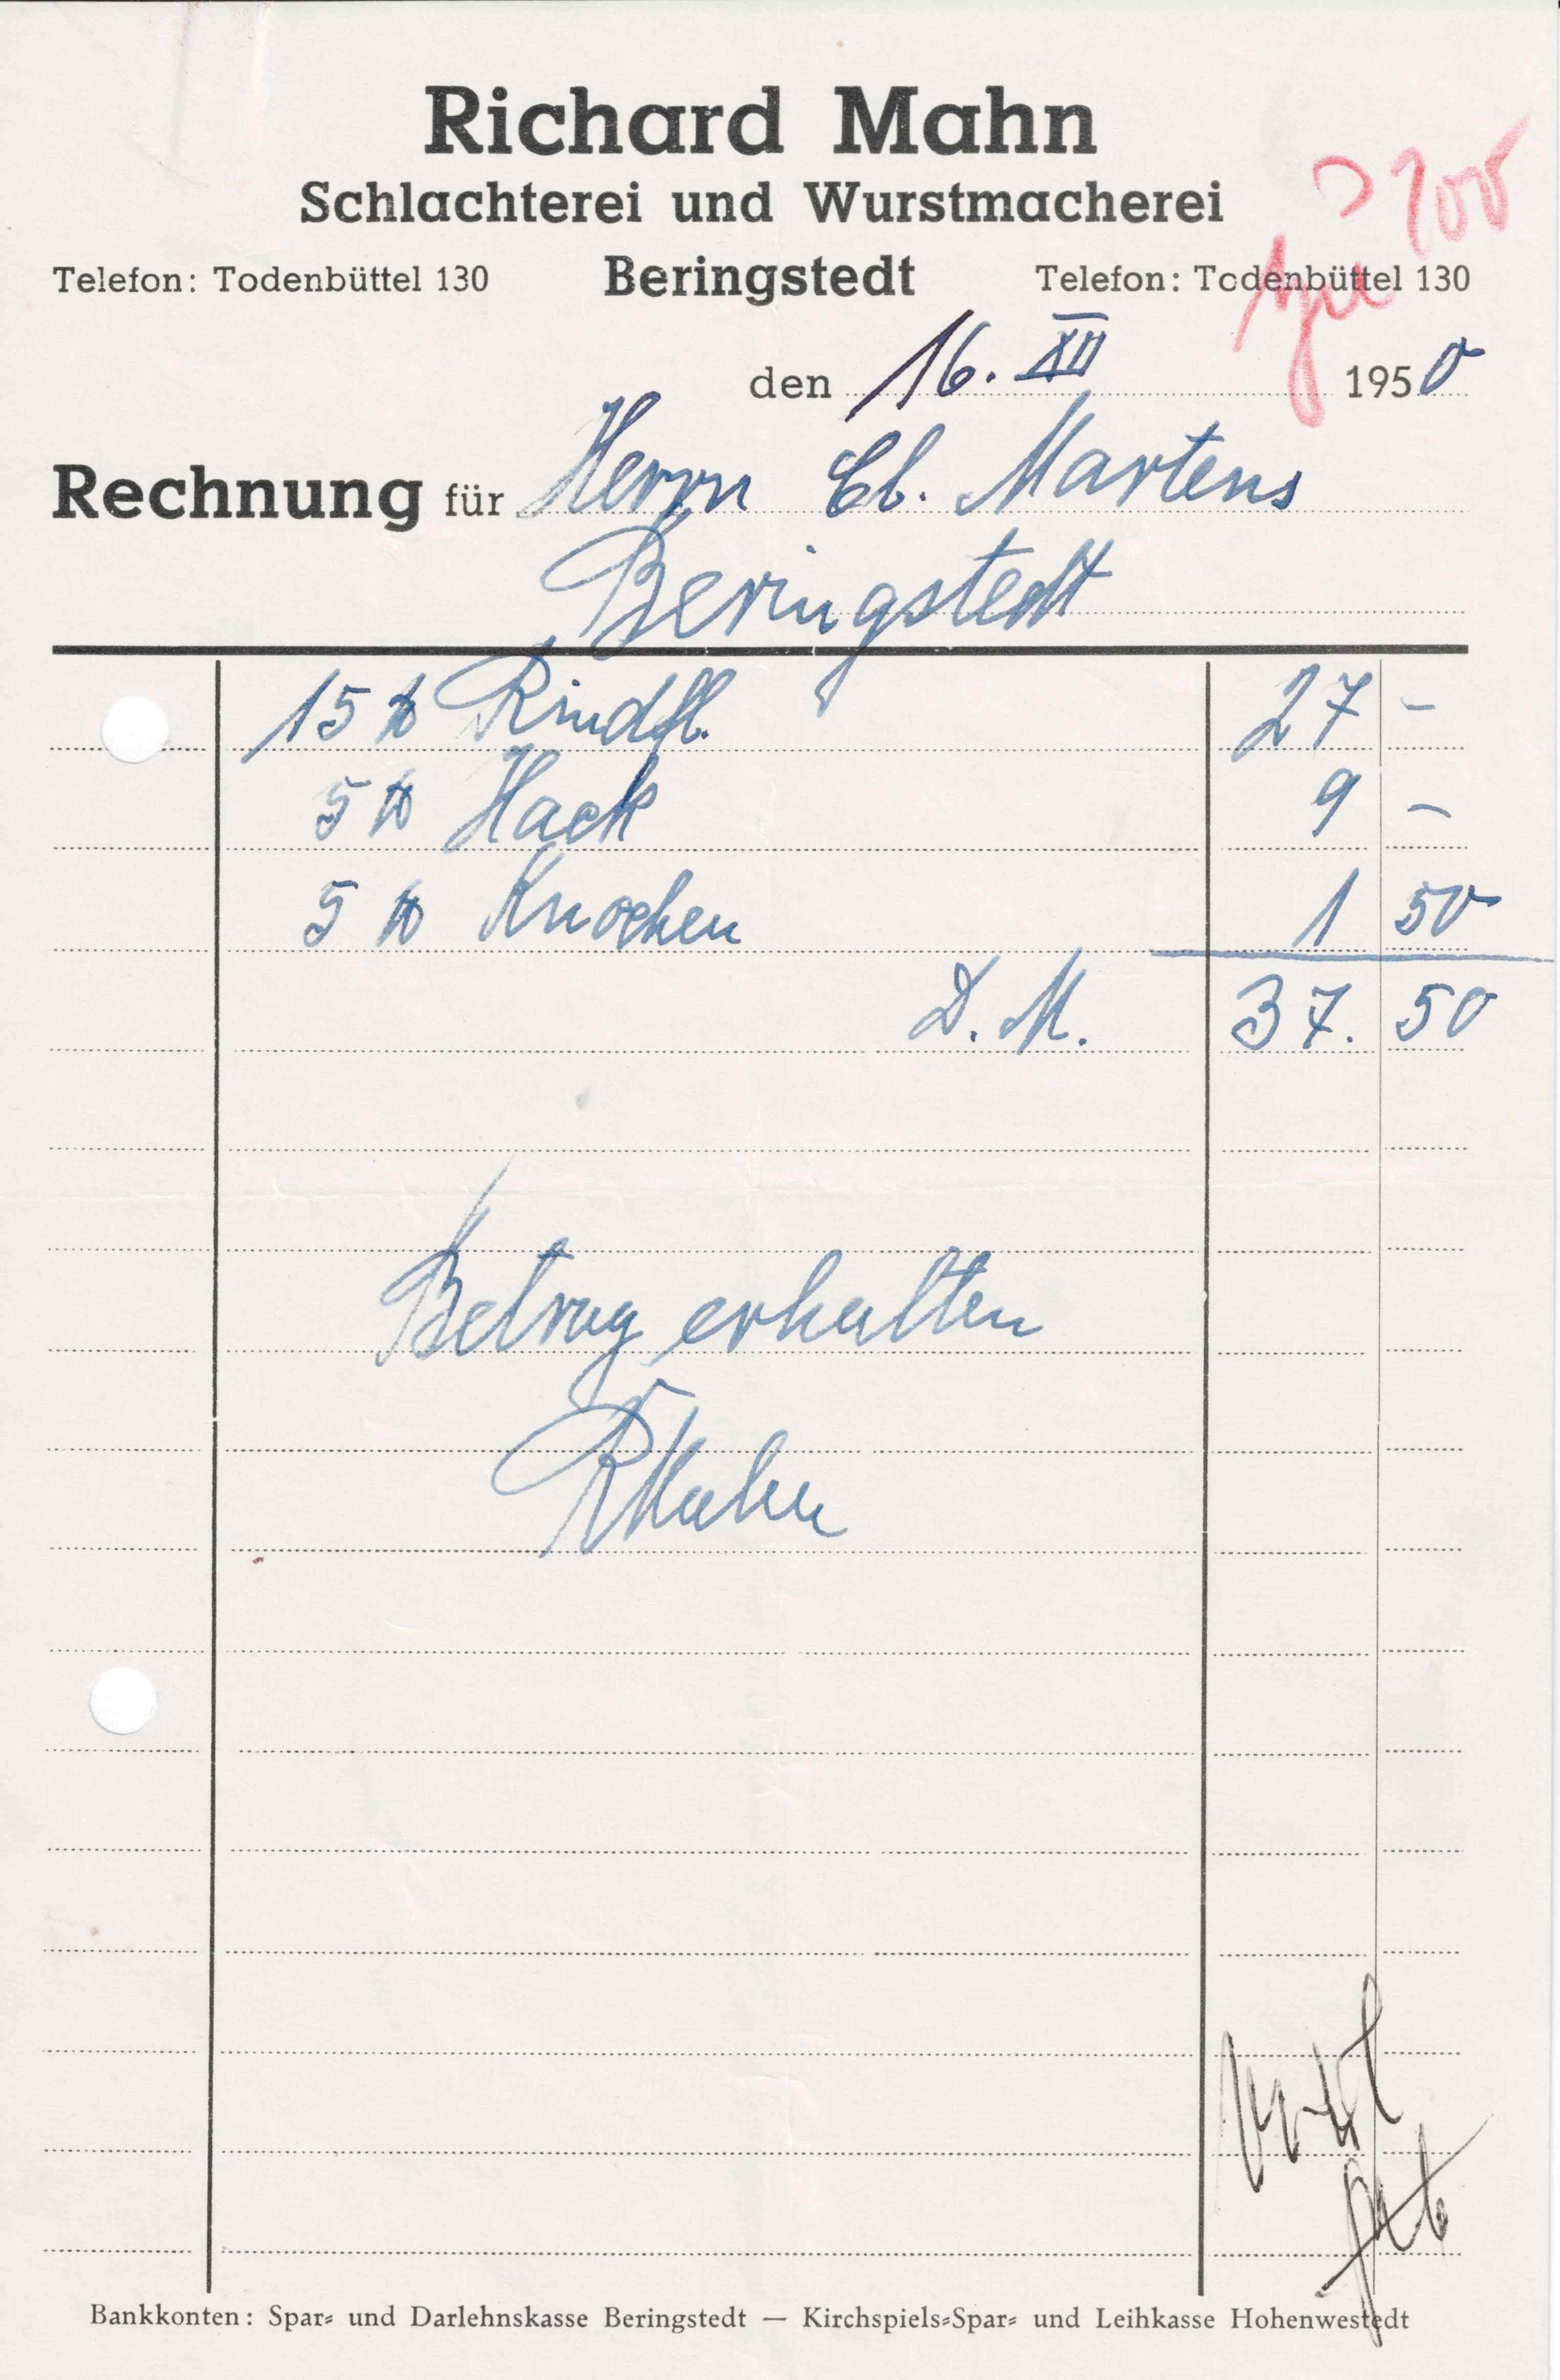 Richard Mahn
Schlachterei und Wurstmacherei
Telefon: Todenbüttel 130 Beringstedt Telefon: Todenbüttel 130
den 16. XII 1950
Rechnung für Herrn Cl. Martens
Beringstedt
15 ℔ Rindfl. 27 –
5 ℔ Hack 9 –
5 ℔ Knochen 1 50
D. M. 37. 50
Betrag erhalten
RMahn
Bankkonten: Spar- und Darlehnskasse Beringstedt — Kirchspiels-Spar- und Leihkasse Hohenwestedt